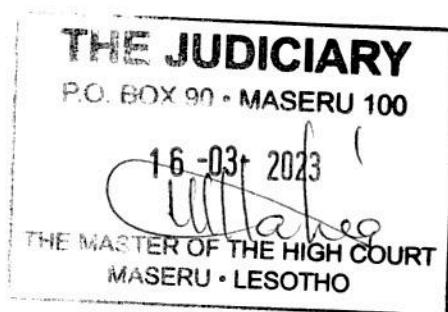 THE JUDICIARY
P.O. BOX 90 • MASERU 100
16 -03- 2023
THE MASTER OF THE HIGH COURT
MASERU • LESOTHO